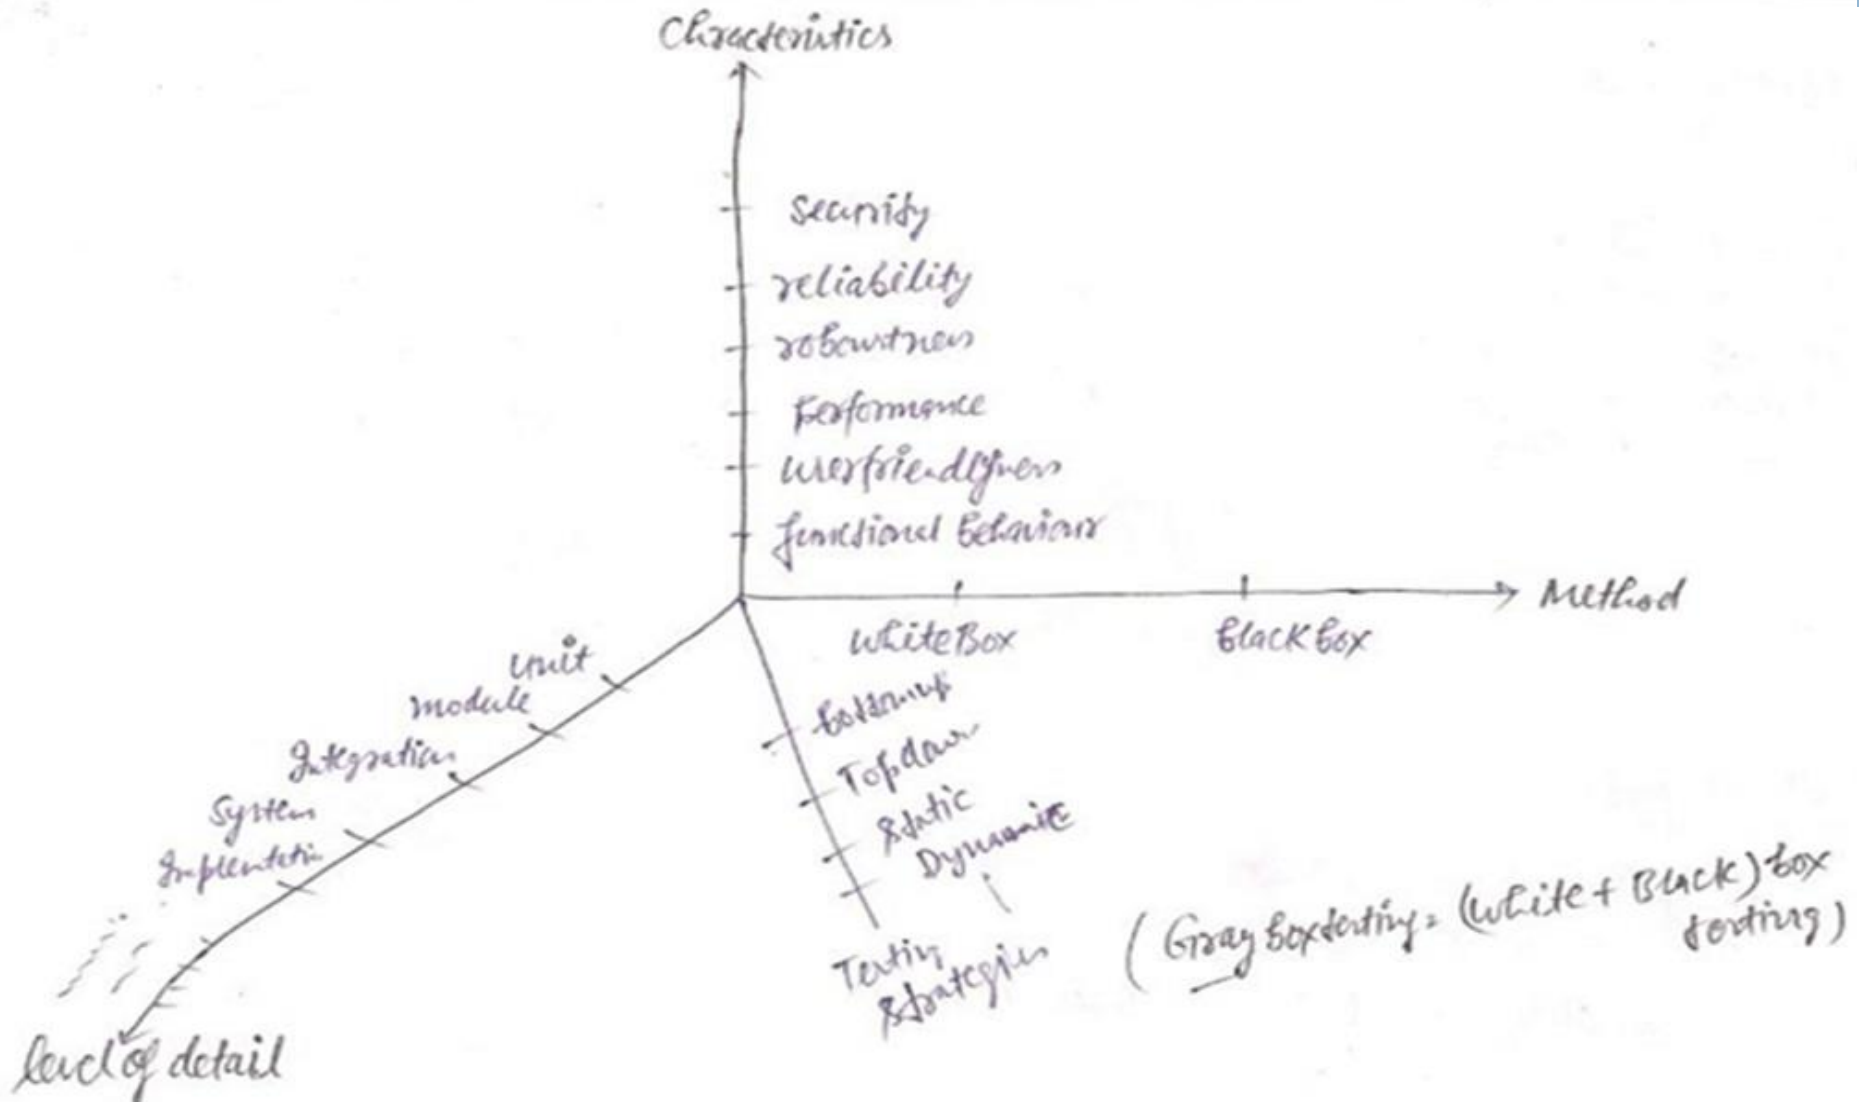 Chracteristics
Security
reliability
robustness
Performance
userfriendlyness
functional behaviour
Method
WhiteBox
blackbox
Unit
module
Integration
System
Implentatin
level of detail
bottomup
Topdown
static
Dynamic
Testing
strategies
( Gray box testing = (white + Black) box
testing )